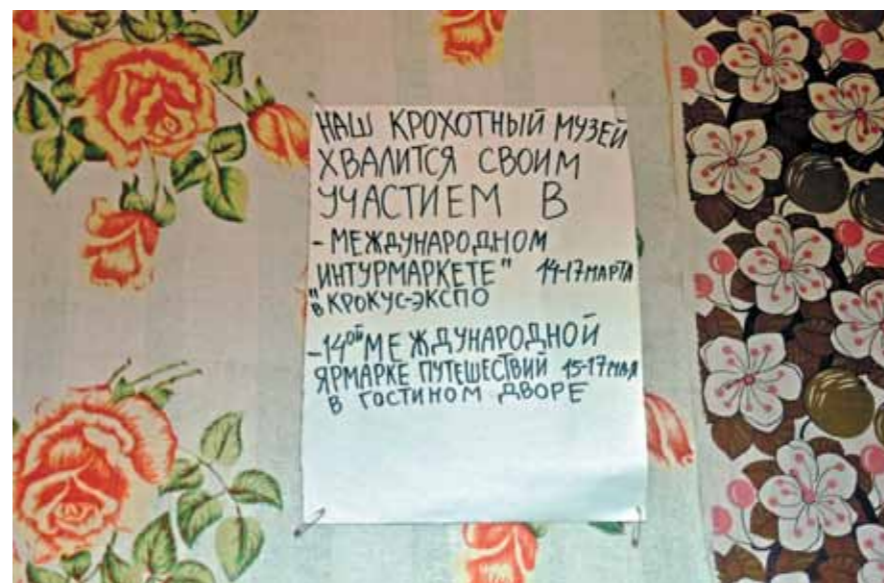 НАШ КРОХОТНЫЙ МУЗЕЙ
ХВАЛИТСЯ СВОИМ
УЧАСТИЕМ В
- МЕЖДУНАРОДНОМ
ИНТУРМАРКЕТЕ" 14-17 МАРТА
"В КРОКУС-ЭКСПО
- 14ОЙ МЕЖДУНАРОДНОЙ
ЯРМАРКЕ ПУТЕШЕСТВИЙ 15-17 МАЯ
В ГОСТИНОМ ДВОРЕ